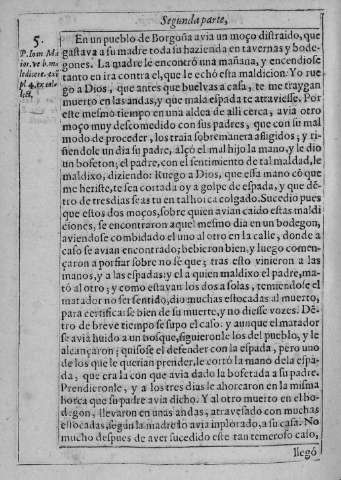 Segunda parte,
5.
P. Ioan. Ma
ior. ve b. ma
ledicere. exẽ
pl. 4. ex coloEn un pueblo de Borgoña avia un moço distraido, que
gastava a su madre toda su hazienda en tavernas y bode-
gones. La madre le encontrò una mañana, y encendiose
tanto en ira contra el, que le echó esta maldicion: Yo rue
go a Dios, que antes que buelvas a casa, te me traygan
muerto en las andas, y que mala espada te atraviesse. Por
este mesmo tiempo en una aldea de alli cerca, avia otro
moço muy descomedido con sus padres, que con su mal
modo de proceder, los traia sobremanera afligidos; y ri-
ñendole un dia su padre, alçó el mal hijo la mano, y le dio
un bofeton; el padre, con el sentimiento de tal maldad, le
maldixo, diziendo: Ruego a Dios, que essa mano cõ que
me heriste, te sea cortada oy a golpe de espada, y que dẽ-
tro de tres dias seas tu en tal horca colgado. Sucedio pues
que estos dos moços, sobre quien avian caido estas maldi
ciones, se encontraron aquel mesmo dia en un bodegon,
aviendose combidado el uno al otro en la calle, donde a
caso se avian encontrado; bebieron bien, y luego comen-
çaron a porfiar sobre no se que; tras esto vinieron a las
manos, y a las espadas: y el a quien maldixo el padre, ma-
tó al otro; y como estavan los dos a solas, temiendose el
matador no ser sentido, dio muchas estocadas al muerto,
para certificarse bien de su muerte, y no diesse vozes. Dẽ-
tro de breve tiempo se supo el caso: y aunque el matador
se avia huido a un bosque, siguieronle los del pueblo, y le
alcançaron; quisose el defender con la espada, pero uno
de los que le querian prender, le cortò la mano de la espa-
da, que era la con que avia dado la bofetada a su padre.
Prendieronle, y a los tres dias le ahorcaron en la misma
horca que su padre avia dicho. Y al otro muerto en el bo-
degon, llevaron en unas andas, atravesado con muchas
estocadas, segun la madre lo avia inplorado, a su casa. No
mucho despues de aver sucedido este tan temeroso caso,
llegó